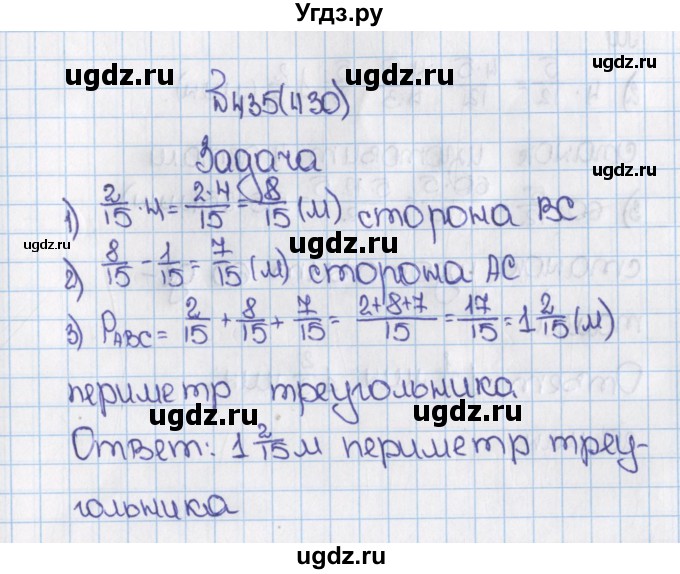 Угдз.ру
ugdz.ru ugdz.ru ugdz.ru
№435(430)
ugdz.ru
Задача
1) 2/15 · 4 = 2·4/15 = 8/15 (м) сторона BC
ugdz.ru
2) 8/15 - 1/15 = 7/15 (м) сторона AC
ugdz.ru
3) P_ABC = 2/15 + 8/15 + 7/15 = 2+8+7/15 = 17/15 = 1 2/15 (м)
периметр треугольника
ugdz.ru ugdz.ru
Ответ: 1 2/15 м периметр треу-
гольника
ugdz.ru ugdz.ru ugdz.ru
ugdz.ru